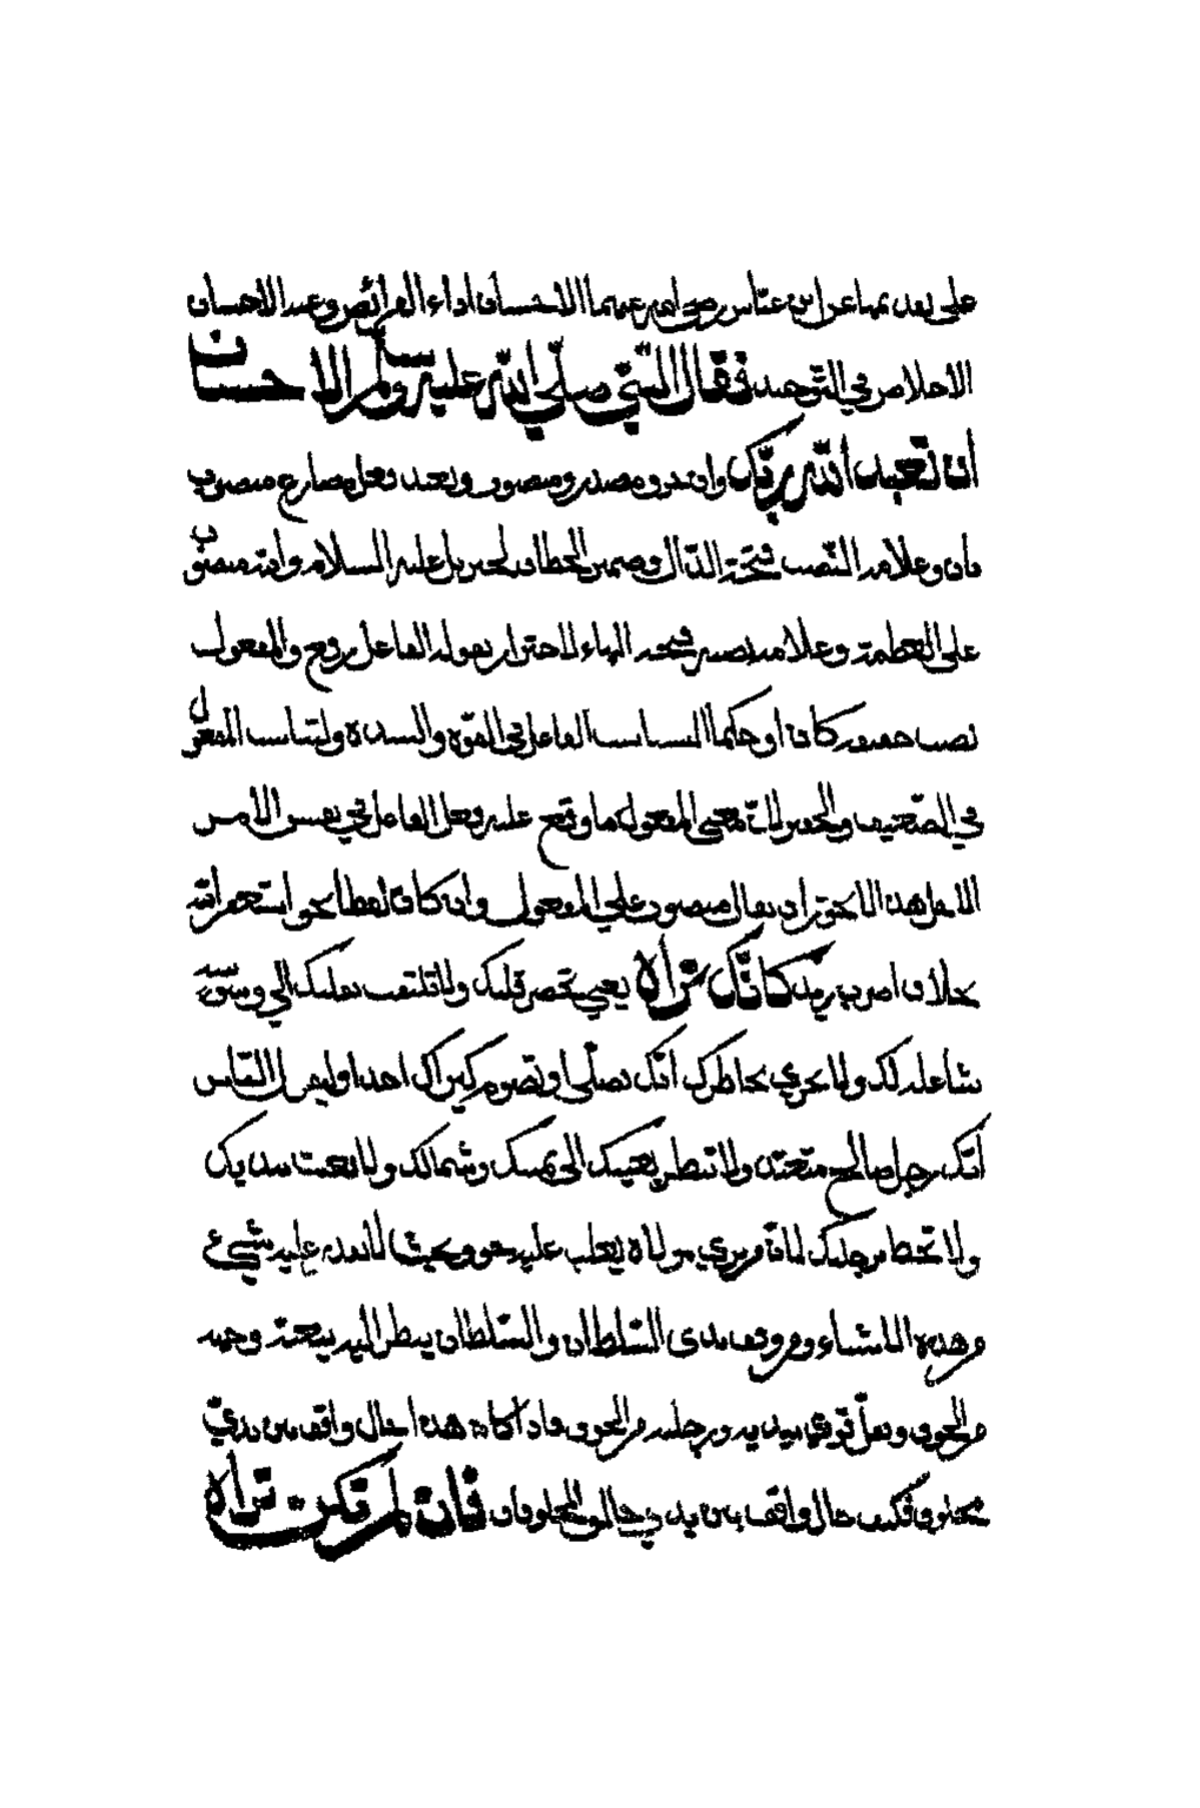 على بعد بما عن ابن عباس رضى الله عنهما الاحسان اداء الفرائض وعند الاحسان
الاخلاص في التوحيد فقال النبي صلى الله عليه وسلم الاحسان
ان تعبد الله ربك وان مصدر ومنصوب وتعبد فعل مضارع منصوب
بان وعلامة النصب فتحة الدال وضمير الخطاب لجبريل عليه السلام والله منصوب
على العظمة وعلامة نصبه فتحة الهاء للاحتراز بقوله الفاعل رفع والمفعول
نصب كان او حكما الفاعل في القوة والشدة ولتناسب المفعول
في الضعيف والحقير لان معنى المفعول ما وقع عليه فعل الفاعل في نفس الامر
الا هذا ان يقال منصوب على المفعول وان كان لفظا نحو استغفر الله
خلاف اضرب زيد كانك تراه يعني تحضر قلبك ولا تلتفت بقلبك الى وسوسة
ولا يجري بخاطرك انك تصلي او تصوم احدا وليقول الناس
انك رجل صالح متعبد ولا تنظر بعينيك الى يمينك وشمالك ولا تعبث بيديك
ولا رجليك لان من يرى مولاه يغلب عليه خوف بحيث عليه شيء
من هذه الاشياء وقف بيدي السلطان والسلطان ينظر اليه وجهه
من الخوف ويديه ورجليه من الخوف فاذا كان هذا حال واقف بين يدي
مخلوق فكيف حال واقف بين يدي خالق المخلوقات فان لم تكن تراه